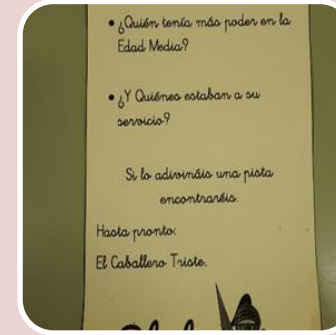 • ¿Quién tenía más poder en la
Edad Media?
• ¿Y Quiénes estaban a su
servicio?
Si lo adivináis una pista
encontraréis.
Hasta pronto:
El Caballero Triste.